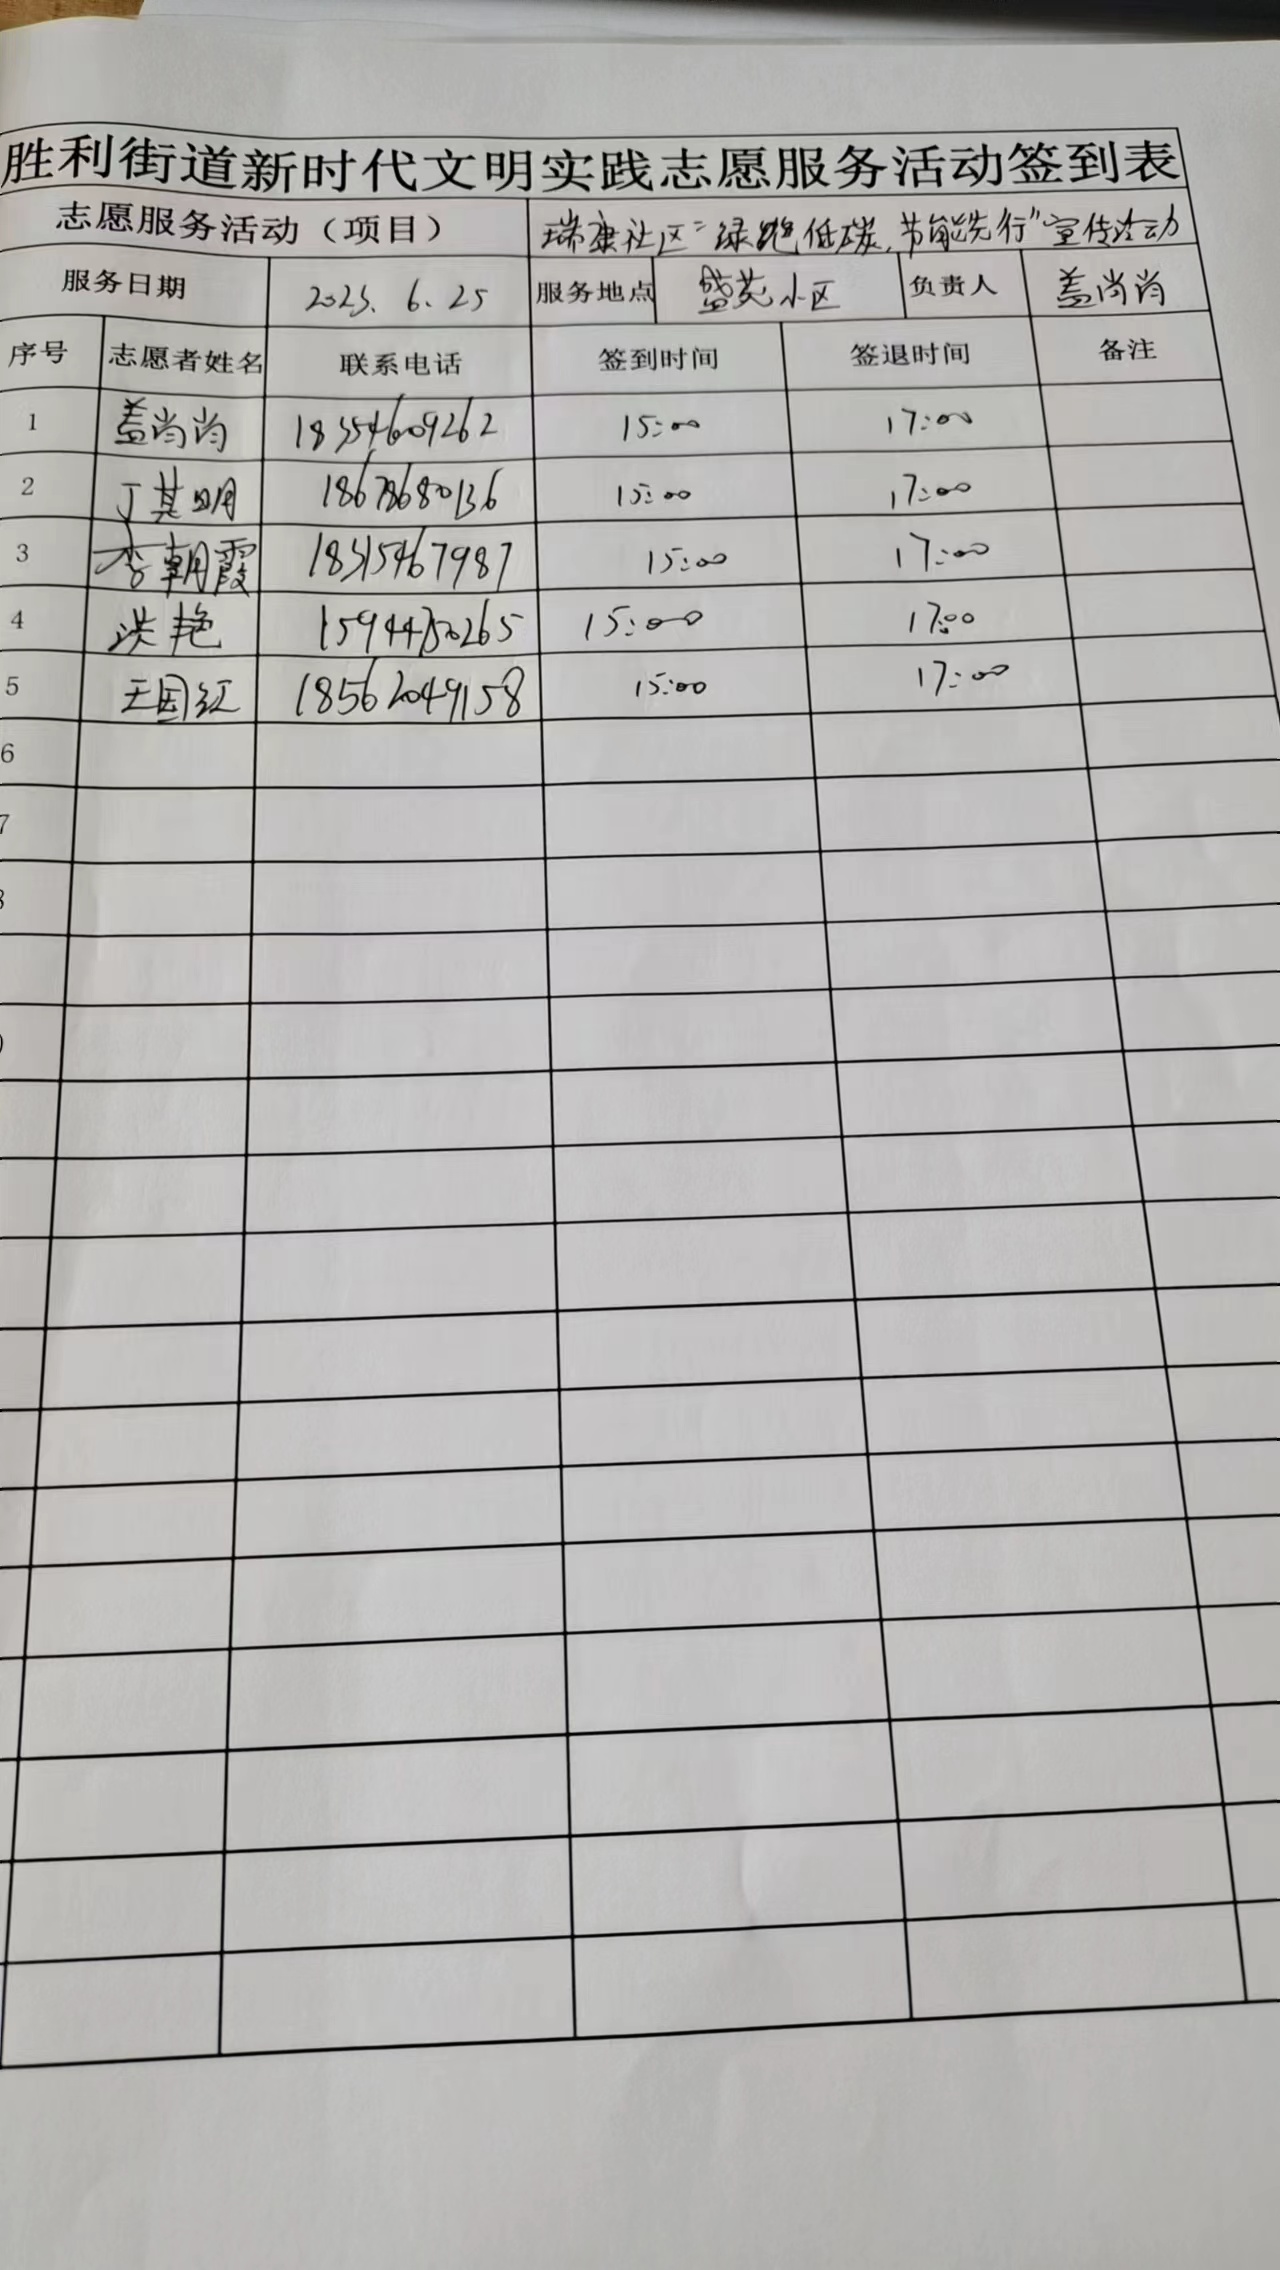 胜利街道新时代文明实践志愿服务活动签到表
志愿服务活动（项目） 瑞康社区“绿色低碳，节能先行”宣传活动
服务日期 2023.6.25 服务地点 盛苑小区 负责人 盖尚尚
序号 志愿者姓名 联系电话 签到时间 签退时间 备注
1 盖尚尚 18354609262 15:00 17:00
2 丁其明 18678680136 15:00 17:00
3 李朝霞 18315467987 15:00 17:00
4 洪艳 15944750265 15:00 17:00
5 王国红 18562049158 15:00 17:00
6
7
8